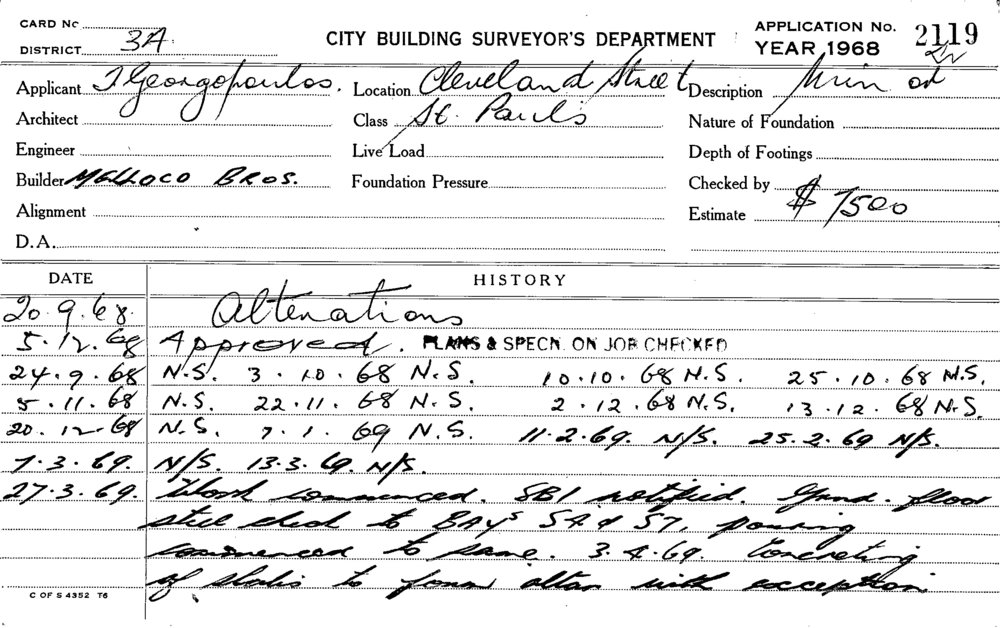 CARD No
DISTRICT 3A
CITY BUILDING SURVEYOR'S DEPARTMENT
APPLICATION No. 2119
YEAR 1968
Applicant J Georgopoulos. Location Cleveland Street Description
Architect Class St. Paul's Nature of Foundation
Engineer Live Load Depth of Footings
Builder MELLOCO BROS. Foundation Pressure Checked by
Alignment Estimate $ 7500
D.A.
DATE HISTORY
20.9.68. Alterations
5.12.68 Approved. PLANS & SPECN. ON JOB CHECKED
24.9.68 N.S. 3.10.68 N.S. 10.10.68 N.S. 25.10.68 N.S.
5.11.68 N.S. 22.11.68 N.S. 2.12.68 N.S. 13.12.68 N.S.
20.12.68 N.S. 7.1.69 N.S. 11.2.69. N/S. 25.2.69 N/S.
7.3.69. N/S. 13.3.69. N/S.
27.3.69. Work commenced. SBI notified. Grnd. floor
steel chcd to BAYS 54 & 57, pouring
commenced to same. 3.4.69. Concreting
of slabs to form altar with exception
C OF S 4352 T6